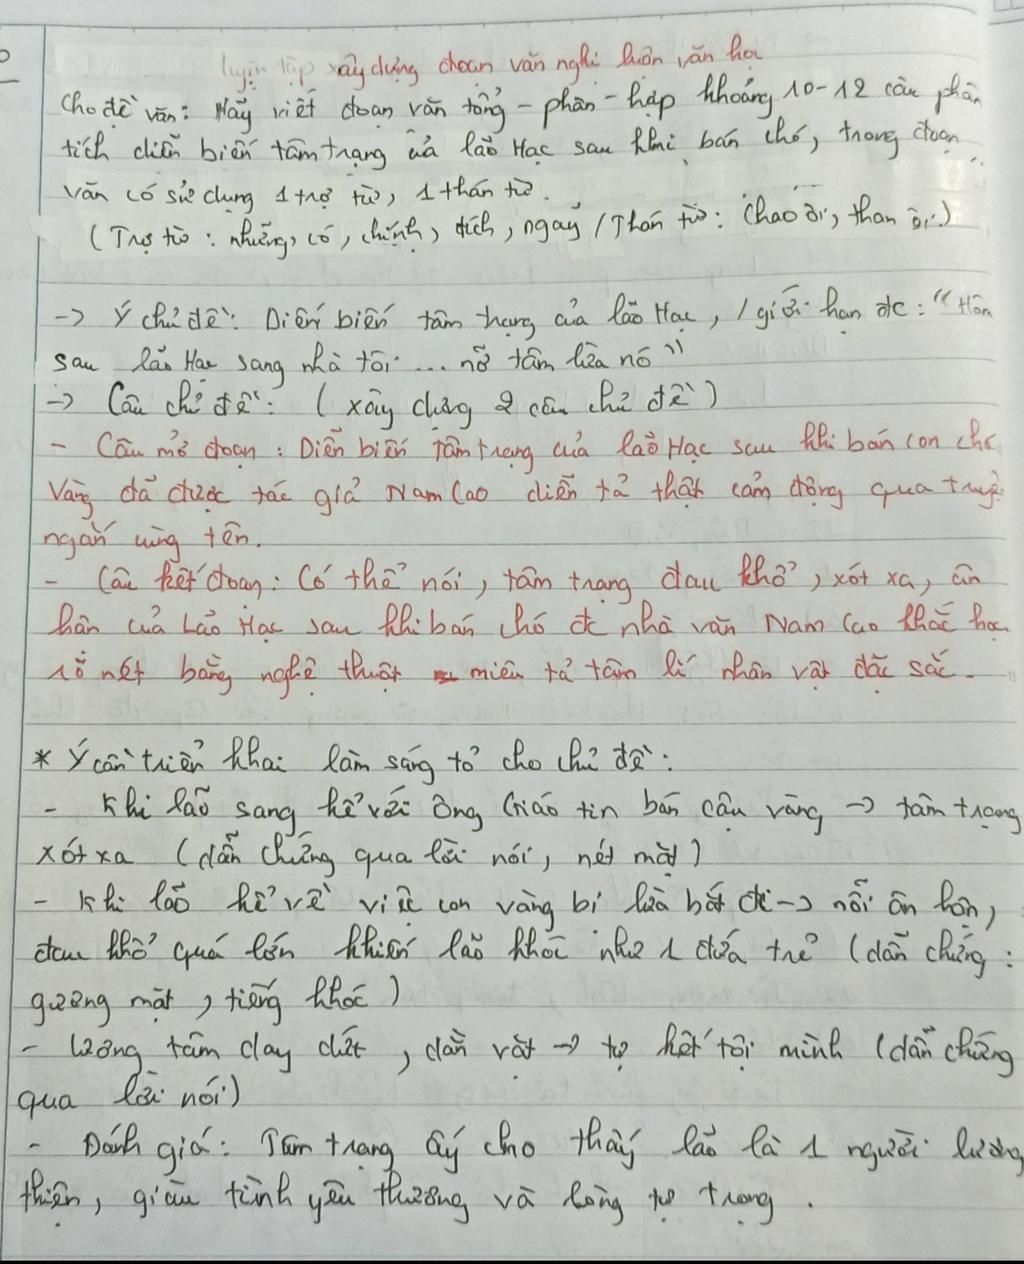 luyện tập xây dựng đoạn văn nghị luận văn học
Cho đề văn: Hãy viết đoạn văn tổng - phân - hợp khoảng 10-12 câu phân
tích diễn biến tâm trạng của lão Hạc sau khi bán chó, trong đoạn
văn có sử dụng 1 trợ từ, 1 thán từ.
(Trợ từ: những, có, chính, đích, ngay / Thán từ: Chao ôi, than ôi.)
-> Ý chủ đề: Diễn biến tâm trạng của lão Hạc, / giới hạn đc: "Hôm
sau lão Hạc sang nhà tôi ... nỡ tâm lừa nó"
-> Câu chủ đề: (xây dựng 2 câu chủ đề)
- Câu mở đoạn: Diễn biến tâm trạng của lão Hạc sau khi bán con chó
Vàng đã được tác giả Nam Cao diễn tả thật cảm động qua truyện
ngắn cùng tên.
- Câu kết đoạn: Có thể nói, tâm trạng đau khổ, xót xa, ân
hận của Lão Hạc sau khi bán chó đc nhà văn Nam Cao khắc họa
rõ nét bằng nghệ thuật miêu tả tâm lí nhân vật đặc sắc.
* Ý cần triển khai làm sáng tỏ cho chủ đề:
- Khi lão sang kể với ông Giáo tin bán cậu vàng -> tâm trạng
xót xa (dẫn chứng qua lời nói, nét mặt)
- Khi lão kể về việc con vàng bị lừa bắt đi -> nỗi ân hận,
đau khổ quá lớn khiến lão khóc như 1 đứa trẻ (dẫn chứng:
gương mặt, tiếng khóc)
- Lương tâm day dứt, dằn vặt -> tự kết tội mình (dẫn chứng
qua lời nói)
- Đánh giá: Tâm trạng ấy cho thấy lão là 1 người lương
thiện, giàu tình yêu thương và lòng tự trọng.